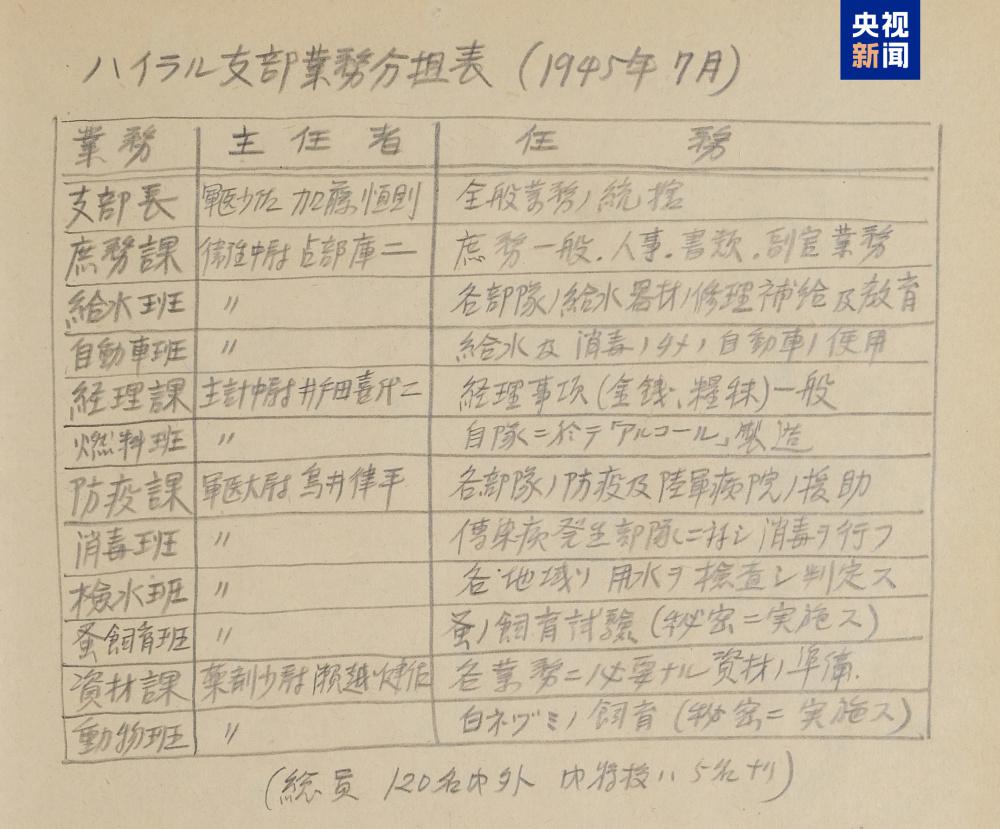 央视
新闻
ハイラル支部業務分担表 (1945年7月)
業務 主任者 任務
支部長 軍医少佐 加藤恒則 全般業務ノ統括
庶務課 衛生中尉 占部庫二 庶務一般.人事.書類.副官業務
給水班 〃 各部隊ノ給水器材ノ修理補給及教育
自動車班 〃 給水及消毒ノタメノ自動車ノ使用
経理課 主計中尉 井戸田喜代二 経理事項(金銭、糧秣)一般
燃料班 〃 自隊ニ於テ「アルコール」製造
防疫課 軍医大尉 鳥井律平 各部隊ノ防疫及陸軍病院ノ援助
消毒班 〃 傳染病発生部隊ニ対シ消毒ヲ行フ
検水班 〃 各地域ノ用水ヲ検査シ判定ス
蚤飼育班 〃 蚤ノ飼育試験(秘密ニ実施ス)
資材課 薬剤少尉 瀬越健佑 各業務ニ必要ナル資材ノ準備.
動物班 〃 白ネヅミノ飼育(秘密ニ実施ス)
(総員 120名内外 内将校ハ5名ナリ)